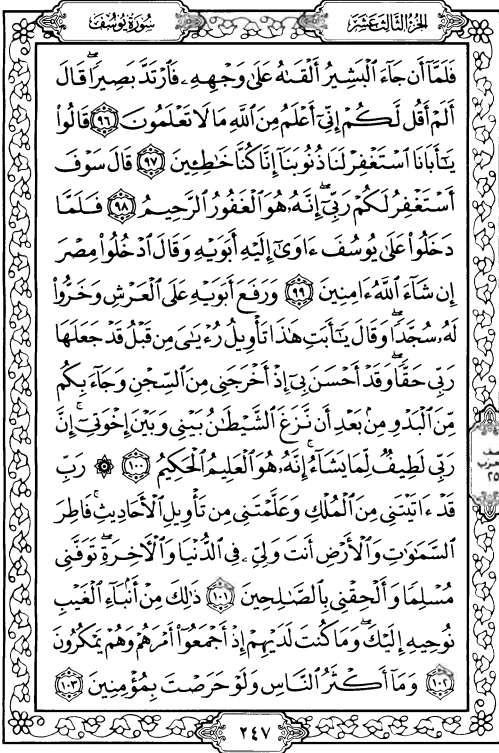 سُورَةُ يُوسُفَ
الجُزْءُ الثَّالِثَ عَشَرَ
فَلَمَّآ أَن جَآءَ ٱلْبَشِيرُ أَلْقَىٰهُ عَلَىٰ وَجْهِهِۦ فَٱرْتَدَّ بَصِيرًاۖ قَالَ
أَلَمْ أَقُل لَّكُمْ إِنِّىٓ أَعْلَمُ مِنَ ٱللَّهِ مَا لَا تَعْلَمُونَ ٩٦ قَالُوا۟
يَـٰٓأَبَانَا ٱسْتَغْفِرْ لَنَا ذُنُوبَنَآ إِنَّا كُنَّا خَـٰطِـِٔينَ ٩٧ قَالَ سَوْفَ
أَسْتَغْفِرُ لَكُمْ رَبِّىٓۖ إِنَّهُۥ هُوَ ٱلْغَفُورُ ٱلرَّحِيمُ ٩٨ فَلَمَّا
دَخَلُوا۟ عَلَىٰ يُوسُفَ ءَاوَىٰٓ إِلَيْهِ أَبَوَيْهِ وَقَالَ ٱدْخُلُوا۟ مِصْرَ
إِن شَآءَ ٱللَّهُ ءَامِنِينَ ٩٩ وَرَفَعَ أَبَوَيْهِ عَلَى ٱلْعَرْشِ وَخَرُّوا۟
لَهُۥ سُجَّدًاۖ وَقَالَ يَـٰٓأَبَتِ هَـٰذَا تَأْوِيلُ رُءْيَـٰىَ مِن قَبْلُ قَدْ جَعَلَهَا
رَبِّى حَقًّاۖ وَقَدْ أَحْسَنَ بِىٓ إِذْ أَخْرَجَنِى مِنَ ٱلسِّجْنِ وَجَآءَ بِكُم
مِّنَ ٱلْبَدْوِ مِنۢ بَعْدِ أَن نَّزَغَ ٱلشَّيْطَـٰنُ بَيْنِى وَبَيْنَ إِخْوَتِىٓۚ إِنَّ
رَبِّى لَطِيفٌ لِّمَا يَشَآءُۚ إِنَّهُۥ هُوَ ٱلْعَلِيمُ ٱلْحَكِيمُ ١٠٠ ۞ رَبِّ
قَدْ ءَاتَيْتَنِى مِنَ ٱلْمُلْكِ وَعَلَّمْتَنِى مِن تَأْوِيلِ ٱلْأَحَادِيثِۚ فَاطِرَ
ٱلسَّمَـٰوَٰتِ وَٱلْأَرْضِ أَنتَ وَلِىِّۦ فِى ٱلدُّنْيَا وَٱلْـَٔاخِرَةِۖ تَوَفَّنِى
مُسْلِمًا وَأَلْحِقْنِى بِٱلصَّـٰلِحِينَ ١٠١ ذَٰلِكَ مِنْ أَنۢبَآءِ ٱلْغَيْبِ
نُوحِيهِ إِلَيْكَۖ وَمَا كُنتَ لَدَيْهِمْ إِذْ أَجْمَعُوٓا۟ أَمْرَهُمْ وَهُمْ يَمْكُرُونَ
١٠٢ وَمَآ أَكْثَرُ ٱلنَّاسِ وَلَوْ حَرَصْتَ بِمُؤْمِنِينَ ١٠٣
٢٤٧